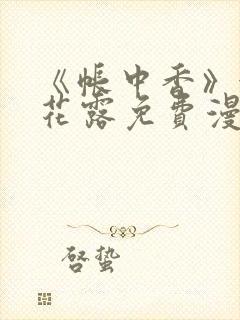 《帐中香》
花露免费漫
启蛰